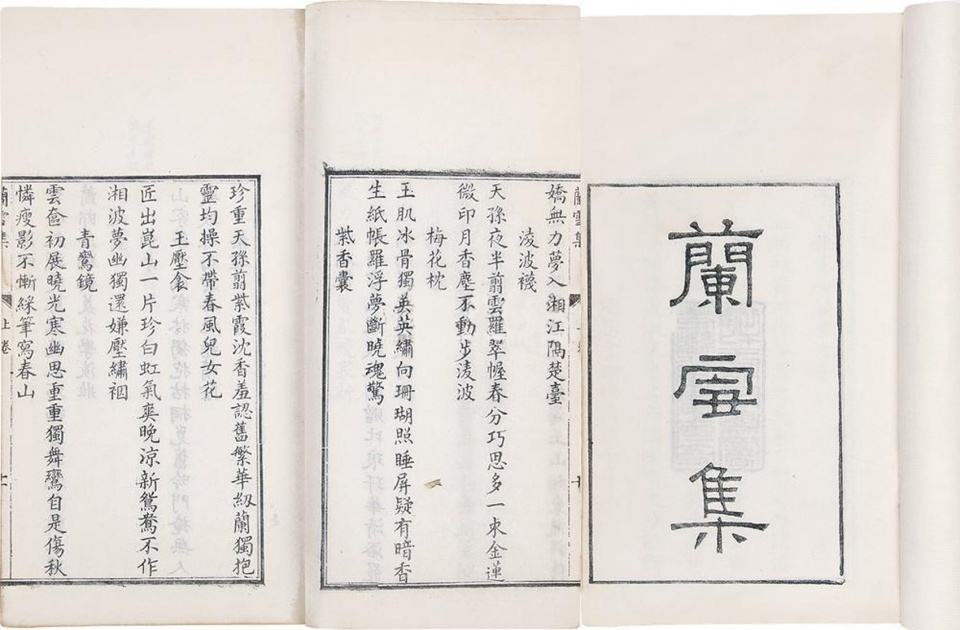 蘭雪集
嬌無力夢入湘江隔楚臺
淩波襪
天孫夜半翦雲羅翠幄春分巧思多一束金蓮
微印月香塵不動步淩波
梅花枕
玉肌冰骨獨英英繡向珊瑚照睡屏疑有暗香
生紙帳羅浮夢斷曉魂驚
紫香囊
珍重天孫翦紫霞沈香羞認舊繁華紉蘭獨抱
靈均操不帶春風兒女花
玉壓衾
匠出崑山一片珍白虹氣爽晚涼新鴛鴦不作
湘波夢幽獨還嫌壓繡裀
青鸞鏡
雲奩初展曉光寒幽思重重獨舞鸞自是傷秋
憐瘦影不慚綵筆寫春山
蘭雪集 上卷